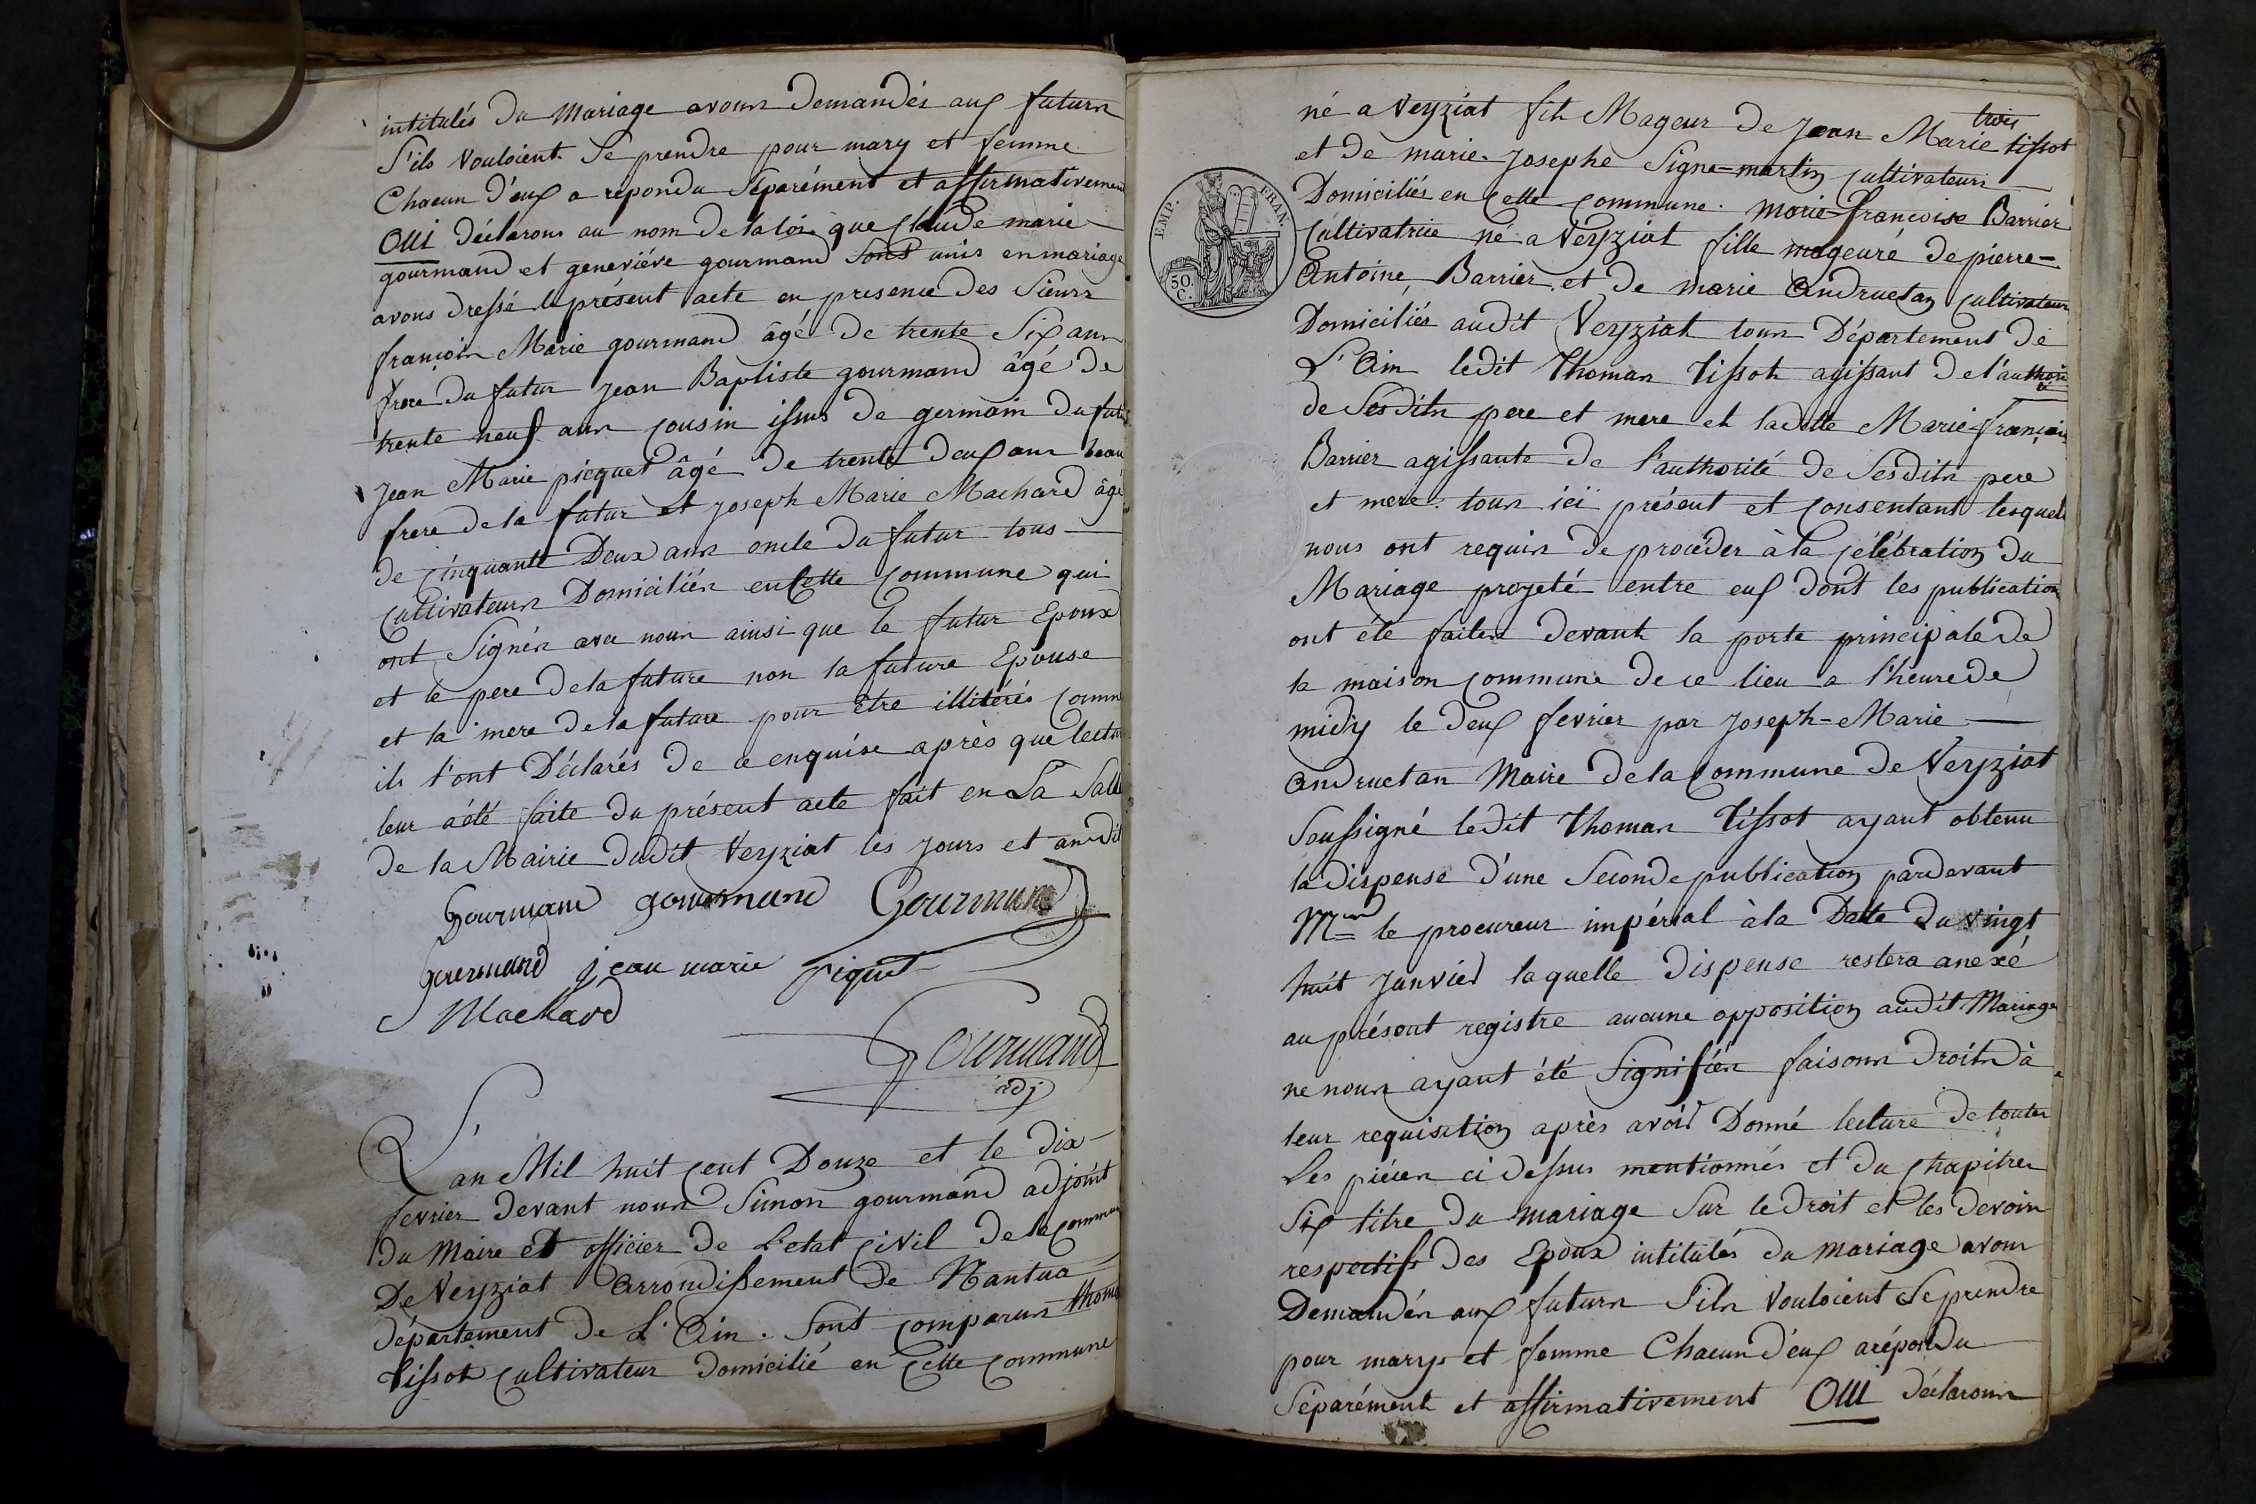 intitulés du Mariage avons Demandés aux futurs
S'ils Vouloient Se prendre pour mary et femme
Chacun d'eux a repondu Séparément et affirmativement
OUI déclarons au nom de la loi que Claude marie
gourmand et geneviéve gourmand Sont unis en mariage
avons dressé le présent acte en presence des Sieurs
françois Marie gourmand âgé de trente Six ans
frere du futur Jean Baptiste gourmand âgé de
trente neuf ans cousin issus de germain du futur
Jean Marie picquet âgé de trente deux ans beau
frere de la futur et Joseph Marie Machard âgé
de cinquante Deux ans oncle du futur tous
Cultivateurs Domiciliés en Cette Commune qui
ont Signés avec nous ainsi que le futur Epoux
et le pere de la future non la future Epouse
et la mere de la future pour être illitérés comme
ils l'ont Déclarés de ce enquise après que lecture
leur a été faite du présent acte fait en La Salle
de la Mairie dudit Veyziat les jours et an dit
Gourmand gourmand Gourmand
Gourmand jean marie Piquet
Machard
Gourmand
adj
L'an Mil huit cent Douze et le dix
fevrier devant nous Simon gourmand adjoint
du Maire et officier de L'etat civil de la commune
De Veyziat Arrondissement de Nantua
département de L'Ain. Sont comparus thomas
tissot cultivateur domicilié en cette commune
trois
né a Veyziat fils Mageur de Jean Marie tissot
et de marie Josephe Signe=martin cultivateurs
EMP. FRAN.
50. C.
Domiciliés en Cette Commune. marie françoise Barrier
Cultivatrice né a Veyziat fille mageuré de pierre=
Antoine, Barrier et de marie Andructan cultivateurs
Domiciliés audit Veyziat tous Département de
L'Ain ledit Thomas Tissot agissant de l'authori
té
de Sesdits pere et mere et ladite Marie françoise
Barrier agissante de l'authorité de Sesdits pere
et mere. tous ici présent et Consentant lesquels
nous ont requis de procéder à la Célébration du
Mariage projeté entre eux dont les publication
ont été faites devant la porte principale de
la maison commune de ce lieu a l'heure de
midy le deux fevrier par Joseph=Marie
Andructan Maire de la Commune de Veyziat
Soussigné ledit Thomas Tissot ayant obtenu
la dispense d'une Seconde publication pardevant
Mr le procureur impérial à la Date du vingt
huit Janvier laquelle Dispense restera anexé
au présent registre aucune opposition audit Mariage
ne nous ayant été Signifiés faisons Droits à
leur requisition après avoir Donné lecture de toutes
Les piéces ci dessus mentionnés et du chapitre
Six titre du mariage Sur le droit et les devoirs
respectifs des Epoux intitulés du mariage avons
Demandés aux futurs S'ils Vouloient Se prendre
pour mary et femme Chacun d'eux a répondu
Séparément et affirmativement OUI déclarons